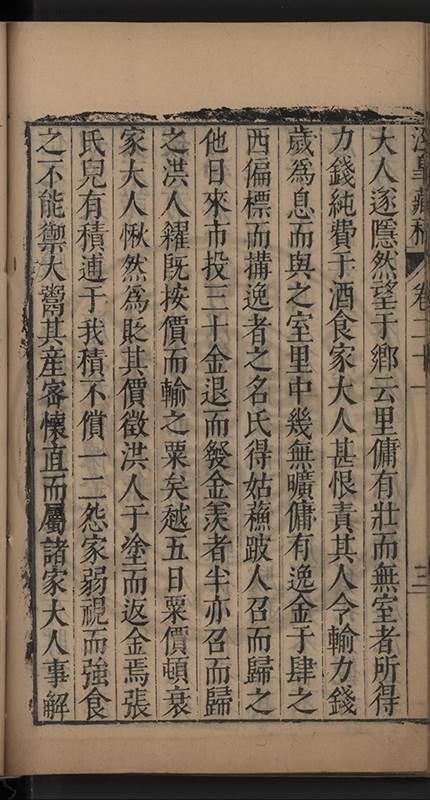 泾臯藏稿 卷二十一 三
大人遂隱然望于鄉云里傭有壯而無室者所得
力錢純費于酒食家大人甚恨責其人令輸力錢
歲為息而與之室里中幾無曠傭有逸金于肆之
西偏標而搆逸者之名氏得姑蘓跛人召而歸之
他日來市投三十金退而發金羨者半亦召而歸
之洪人糴既按價而輸之粟矣越五日粟價頓衰
家大人愀然為貶其價徵洪人于塗而返金焉張
氏兒有積逋于我積不償一二怨家弱視而強食
之不能禦大鬻其産審懷直而屬諸家大人事解